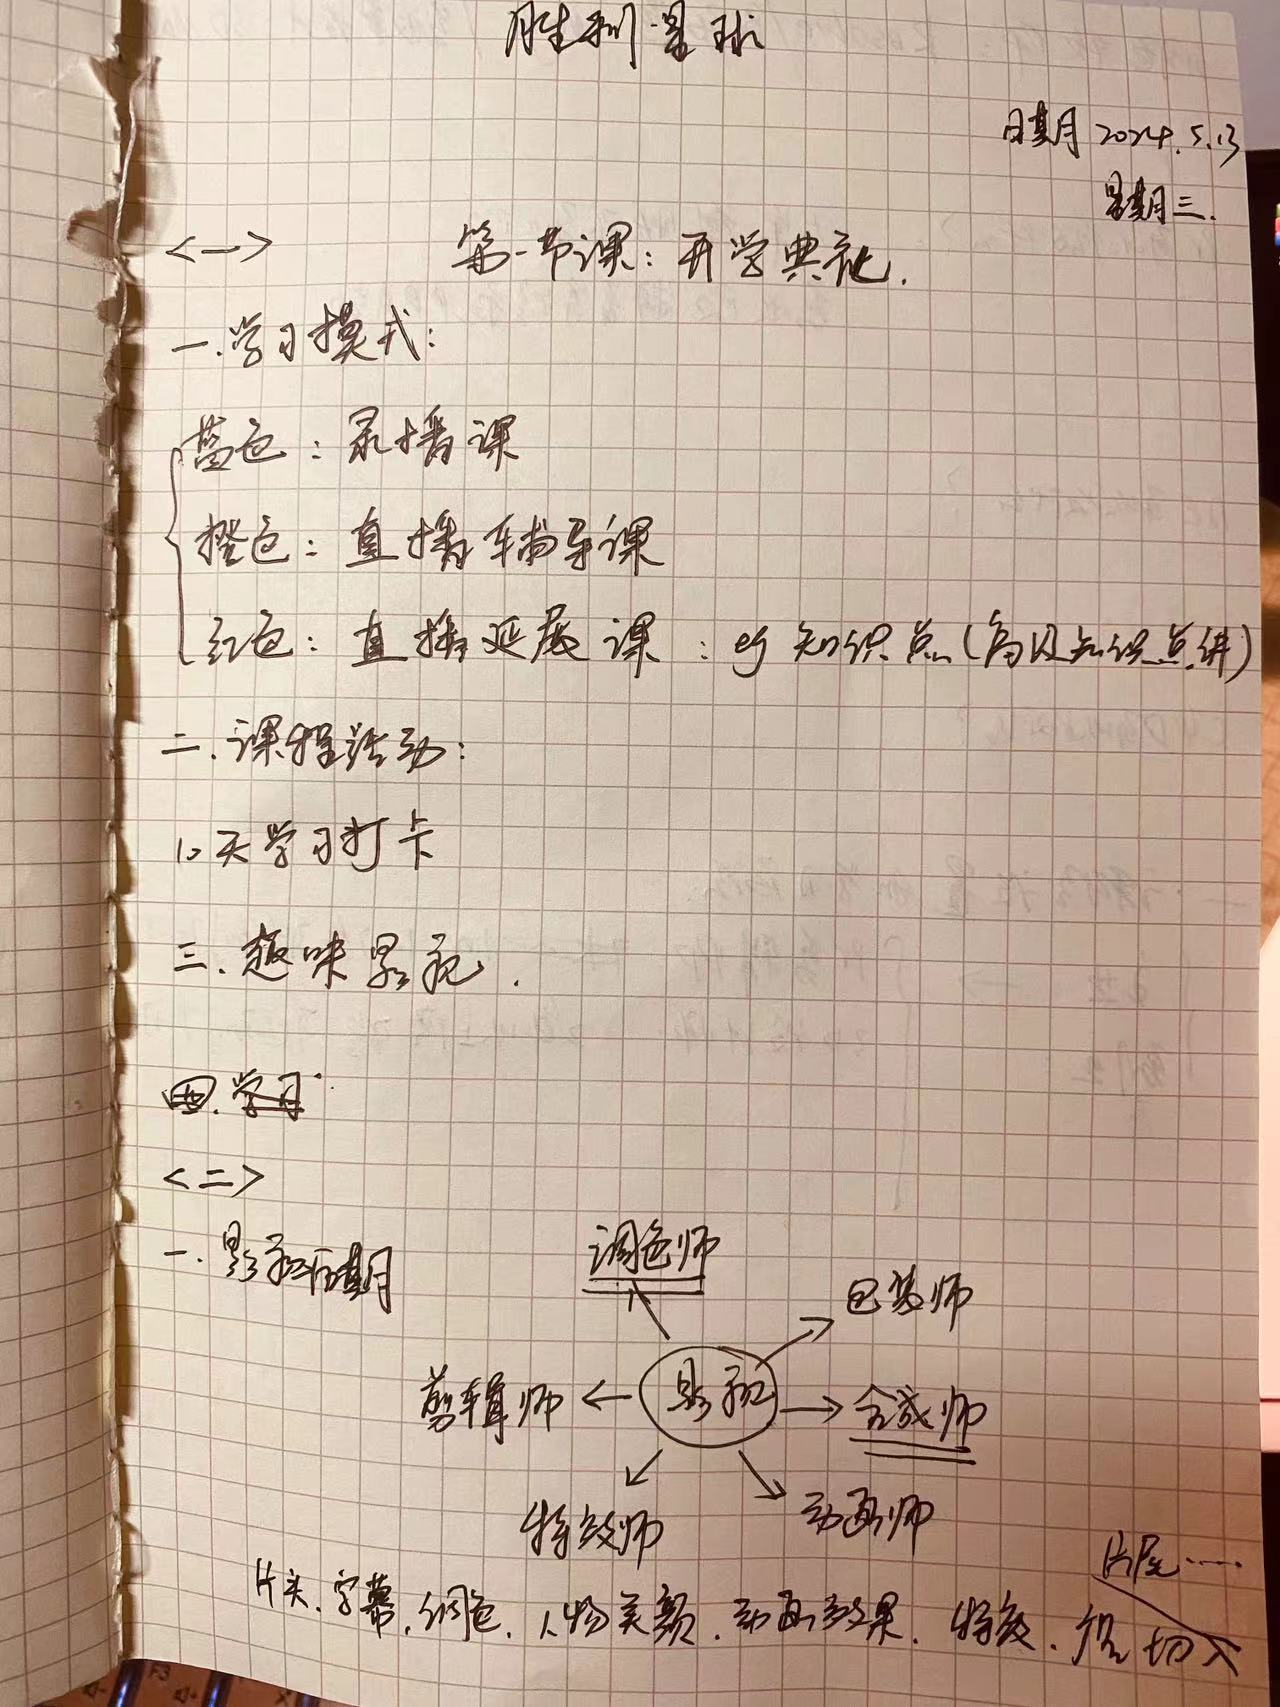 胜利星球
日期 2024.5.13
星期三.
<一> 第一节课: 开学典礼.
一.学习模式:
蓝色: 录播课
橙色: 直播辅导课
红色: 直播延展课: eg 知识点(高级知识点讲)
二.课程活动:
10天学习打卡
三.趣味影视.
四.学习
<二>
一.影视后期
调色师
包装师
剪辑师 ← 影视 → 合成师
特效师 动画师
片尾……
片头.字幕.调色.人物美颜.动画效果.特效. 切入